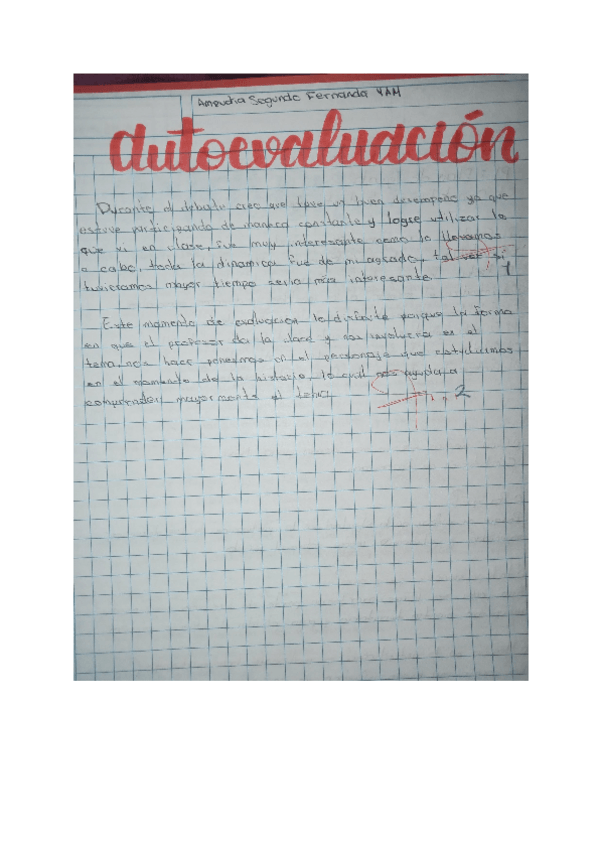 Segundo Fernanda 4AM
autoevaluación
Durante el debate creo que tuve un buen desempeño ya que
estuve participando de manera constante y logre utilizar lo
que vi en clase, fue muy interesante como lo llevamos
a cabo, toda la dinamica fue de mi agrado, tal vez si
tuvieramos mayor tiempo seria más interesante. 1
Este momento de evaluacion lo disfrute porque la forma
en que el profesor da la clase y nos involucra en el
tema, nos hace ponernos en el personaje que
en el momento de la historia, lo cual nos ayuda a
comprender mayormente el tema. 2